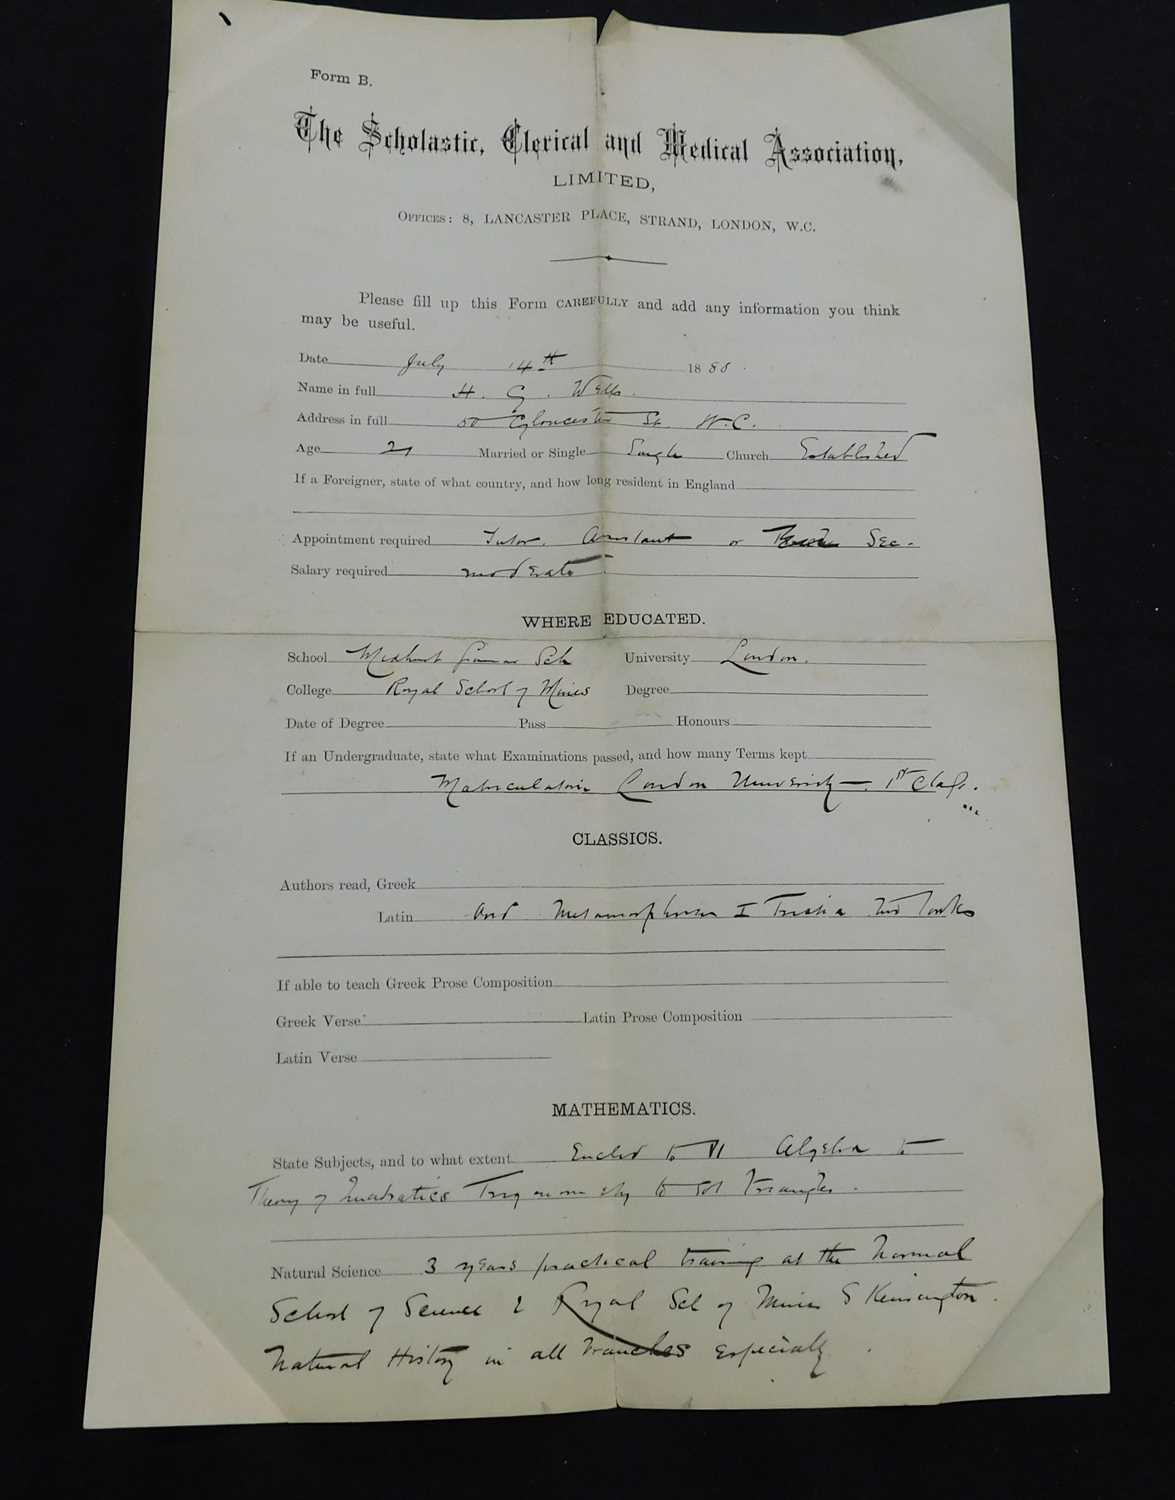 Form B.
The Scholastic, Clerical and Medical Association,
LIMITED,
OFFICES: 8, LANCASTER PLACE, STRAND, LONDON, W.C.
Please fill up this Form CAREFULLY and add any information you think
may be useful.
Date July 14th 1888.
Name in full H. G. Wells.
Address in full Gloucester St W.C.
Age 21 Married or Single Single Church Established
If a Foreigner, state of what country, and how long resident in England
Appointment required Tutor. Assistant or Sec.
Salary required moderate
WHERE EDUCATED.
School Midhurst Grammar Sch University London.
College Royal School of Mines Degree
Date of Degree Pass Honours
If an Undergraduate, state what Examinations passed, and how many Terms kept
Matriculation London University. 1st Class.
CLASSICS.
Authors read, Greek
Latin Ovid Metamorphoses I Tristia two books
If able to teach Greek Prose Composition
Greek Verse Latin Prose Composition
Latin Verse
MATHEMATICS.
State Subjects, and to what extent Euclid to VI Algebra to
Theory of Quadratics Trigonometry to sol triangles.
Natural Science 3 years practical training at the Normal
School of Science & Royal Sch of Mines S Kensington.
Natural History in all branches especially.